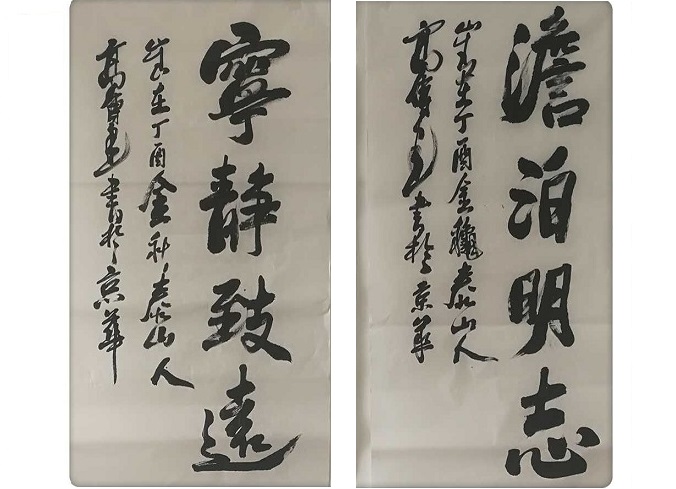 澹泊明志
歲在丁酉金龝泰山人
高書於京華
寧静致遠
歲在丁酉金秋泰山人
高書於京華